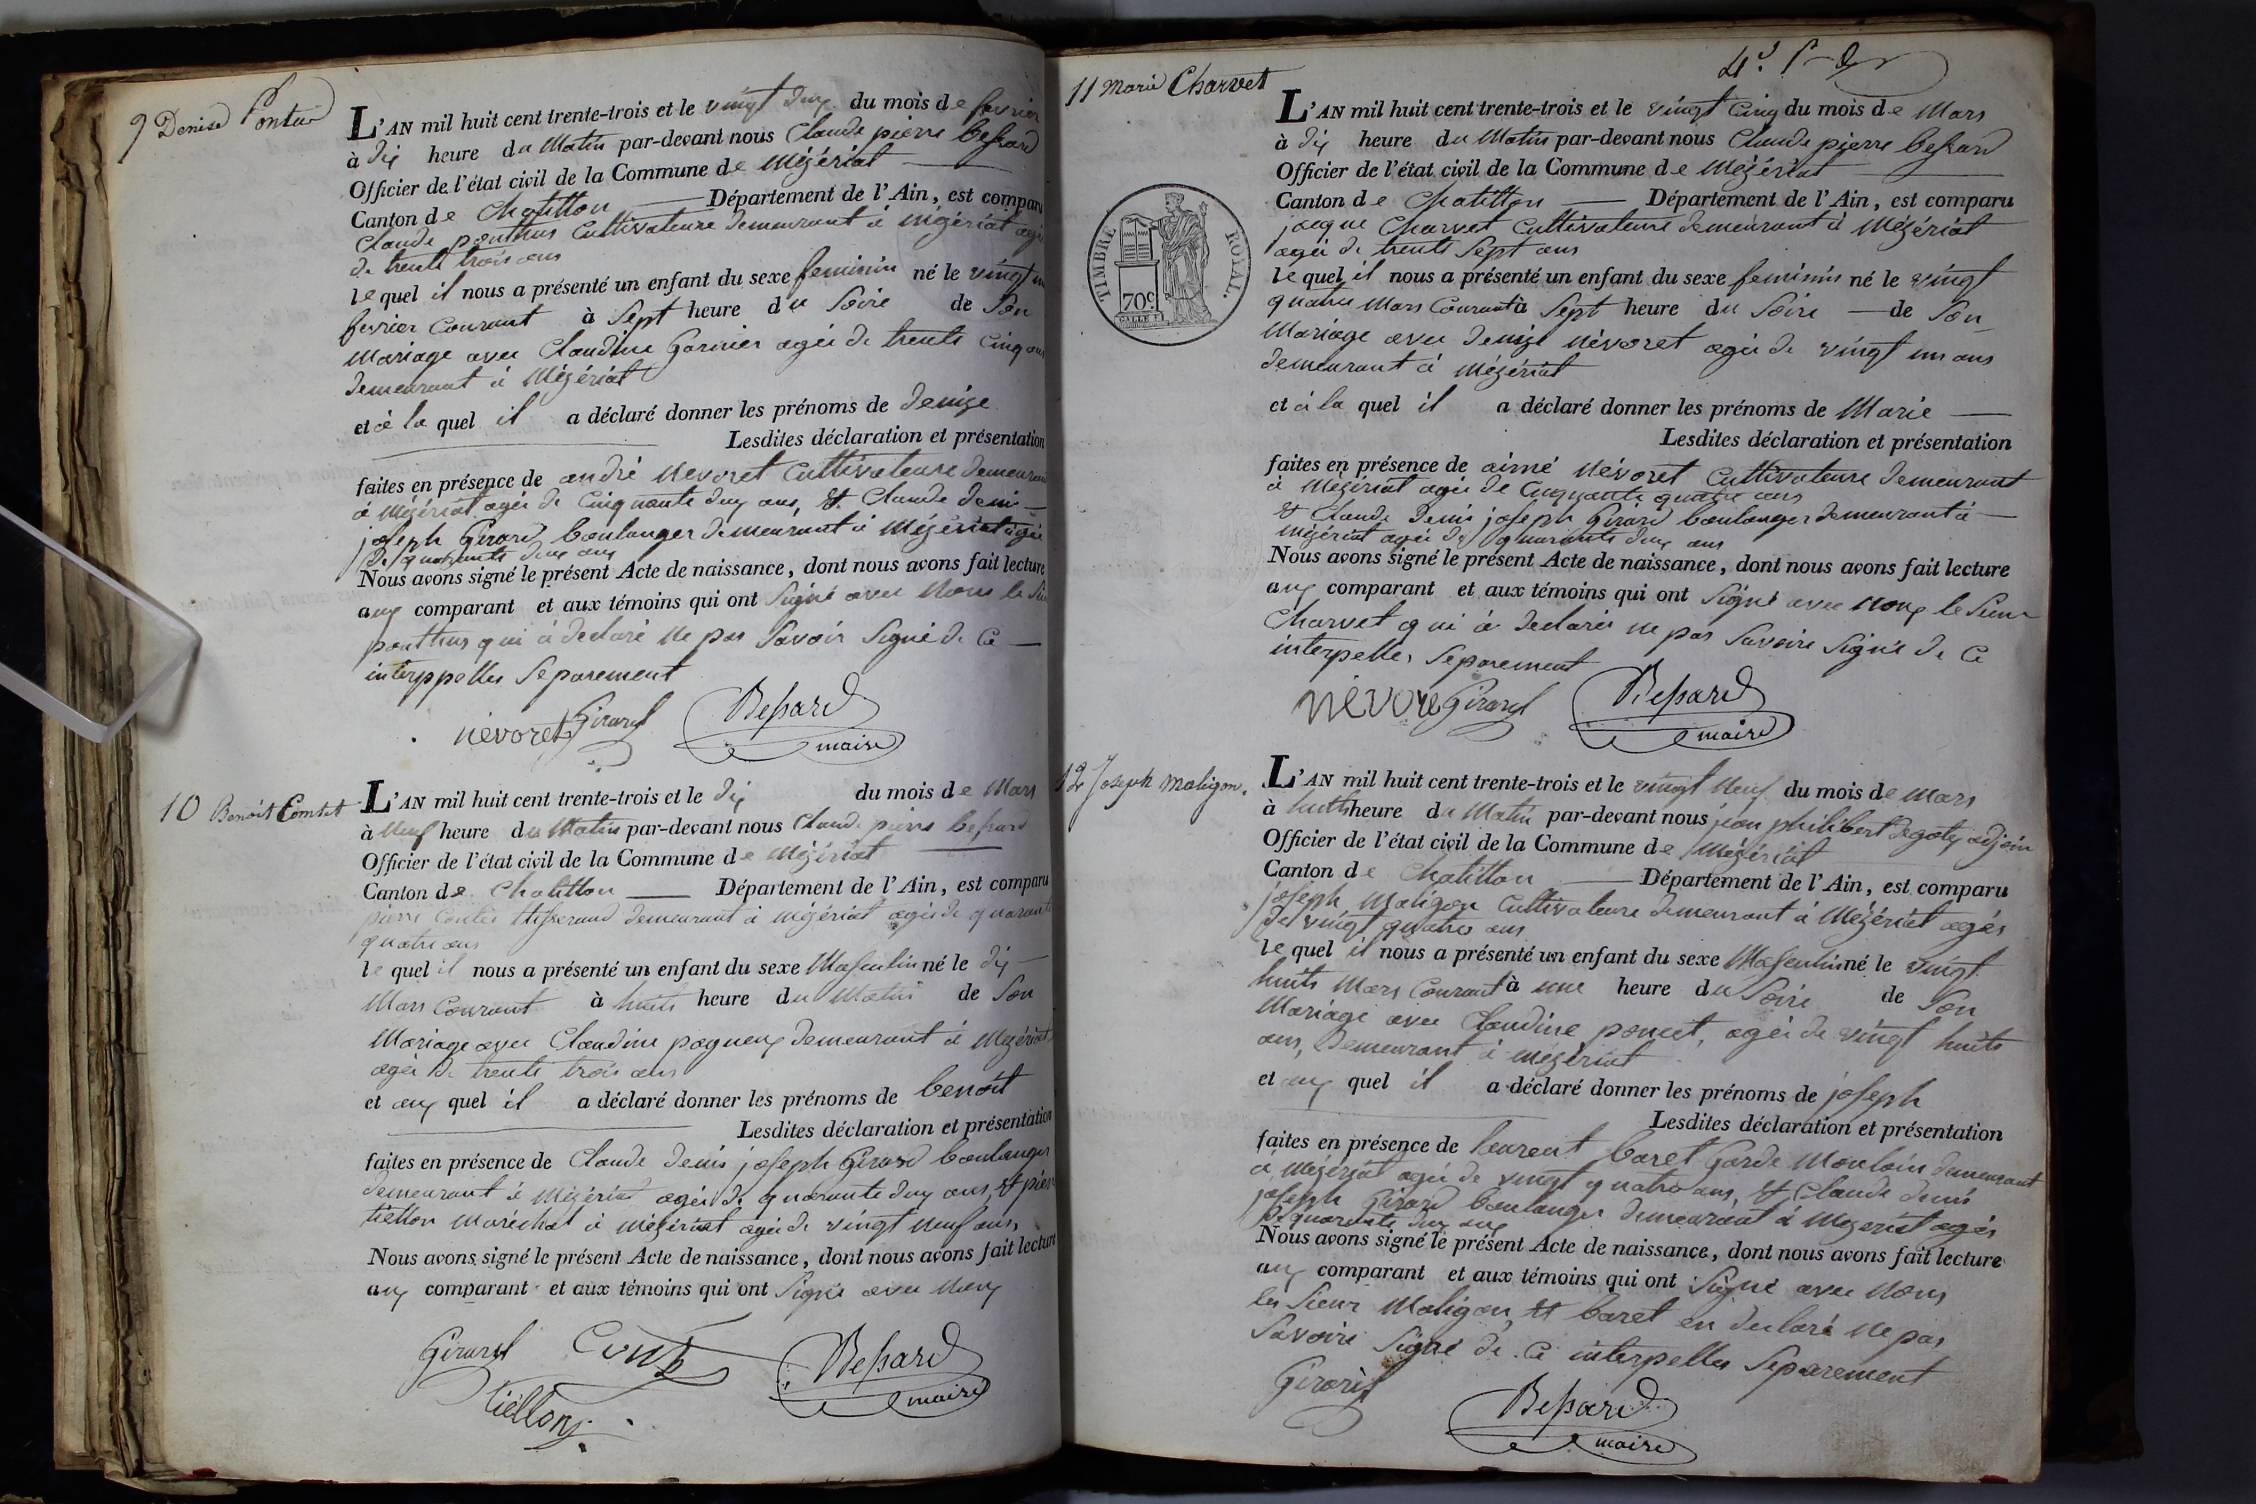 9 Denise Pontus
L'AN mil huit cent trente-trois et le vingt deux du mois de fevrier
à dix heure du Matin par-devant nous Claude pierre bessard
Officier de l'état civil de la Commune de Mézériat
Canton de Chatillon Département de l'Ain, est comparu
Claude ponthus Cultivateure demeurant à mézériat agé
de trente trois ans
le quel il nous a présenté un enfant du sexe feminin né le vingt un
fevrier Courant à Sept heure du Soire de Son
Mariage avec Claudine Garnier agée de trente Cinq ans
demeurant à Mézériat
et à la quel il a déclaré donner les prénoms de denize
Lesdites déclaration et présentation
faites en présence de andré Nevoret Cultivateure demeurant
à Mézériat agée de Cinquante dux ans, et Claude denis
joseph Girard boulanger demeurant à Mézériat agée
de quarante dux ans
Nous avons signé le présent Acte de naissance, dont nous avons fait lecture
aux comparant et aux témoins qui ont Signé avec Nous le Sieur
ponthus qui à declaré ne pas Savoir Signé de Ce
interppelles Separement
névoret Girard Bessard
maire
10 Benoit Comtet
L'AN mil huit cent trente-trois et le dix du mois de Mars
à Neuf heure du Matin par-devant nous Claude pierre bessard
Officier de l'état civil de la Commune de Mézériat
Canton de Chatillon Département de l'Ain, est comparu
pierre Contet tisserand demeurant à mézériat agée de quarante
quatre ans
le quel il nous a présenté un enfant du sexe Masculin né le dix
Mars Courant à huits heure du Matin de Son
Mariage avec Claudine pagneux demeurant à Mézériat
agée de trente trois ans
et aux quel il a déclaré donner les prénoms de benoit
Lesdites déclaration et présentation
faites en présence de Claude denis joseph Girard boulanger
demeurant à Mézériat agée de quarante dux ans, et pierre
tiellon Maréchal à mézériat agée de vingt neuf ans
Nous avons signé le présent Acte de naissance, dont nous avons fait lecture
aux comparant et aux témoins qui ont Signé avec Nous
Girard Bessard
tiellon maire
11 Marie Charvet
L'AN mil huit cent trente-trois et le vingt Cinq du mois de Mars
à dix heure du Matin par-devant nous Claude pierre bessard
Officier de l'état civil de la Commune de Mézériat
Canton de Chatillon Département de l'Ain, est comparu
jacque Charvet Cultivateure demeurant à Mézériat
agée de trente Sept ans
le quel il nous a présenté un enfant du sexe feminin né le vingt
quatre Mars Courant à Sept heure du Soire de Son
Mariage avec denize Névoret agée de vingt un ans
demeurant à Mézériat
et à la quel il a déclaré donner les prénoms de Marie
Lesdites déclaration et présentation
faites en présence de aimé Névoret Cultivateure demeurant
à Mézériat agée de Cinquante quatre ans
et Claude Denis joseph Girard boulanger demeurant à
Mézériat agée de quarante dux ans
Nous avons signé le présent Acte de naissance, dont nous avons fait lecture
aux comparant et aux témoins qui ont Signé avec Nous le Sieur
Charvet qui à declarée ne pas Savoire Signé de Ce
interpelles Separement
névore Girard Bessard
maire
TIMBRE ROYAL.
70c.
12 Joseph Maligon.
L'AN mil huit cent trente-trois et le vingt Neuf du mois de Mars
à huits heure du Matin par-devant nous jean philibert degoty adjoin
Officier de l'état civil de la Commune de Mézériat
Canton de Chatillon Département de l'Ain, est comparu
joseph Maligon Cultivateure demeurant à Mézériat agés
de vingt quatre ans
le quel il nous a présenté un enfant du sexe Masculin né le vingt
huits Mars Courant à une heure du Soire de Son
Mariage avec Claudine poncet, agée de vingt huits
ans, Demeurant à mézériat
et aux quel il a déclaré donner les prénoms de joseph
Lesdites déclaration et présentation
faites en présence de laurent baret Garde Moulain demeurant
à Mézériat agée de vingt quatre ans, et Claude denis
joseph Girard boulanger demeurant à Mézériat agés
de quarante dux ans
Nous avons signé le présent Acte de naissance, dont nous avons fait lecture
aux comparant et aux témoins qui ont Signé avec Nous
les Sieur Maligon, et baret en declaré ne pas
Savoire Signé de Ce interpelles Separement
Girard Bessard
maire